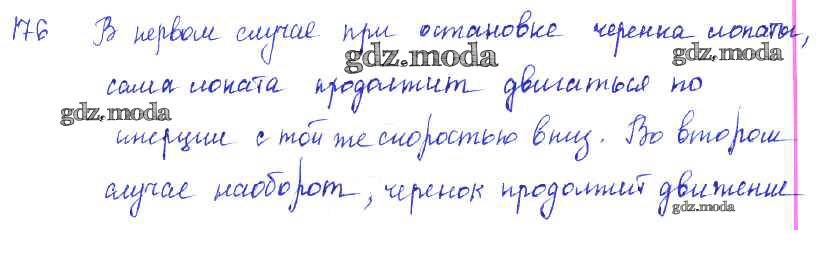 176 В первом случае при остановке черенка лопаты,
gdz.moda gdz.moda
сама лопата продолжит двигаться по
gdz.moda
инерции с той же скоростью вниз. Во втором
случае наоборот, черенок продолжит движение
gdz.moda